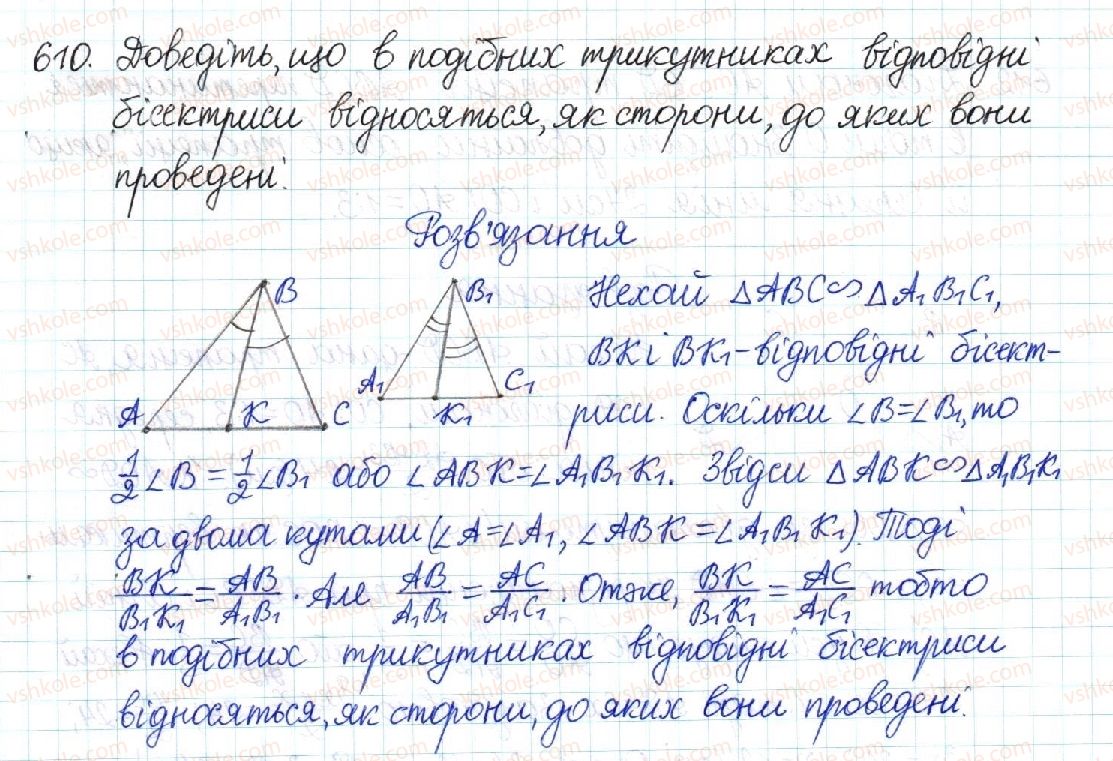 610. Доведіть, що в подібних трикутниках відповідні
бісектриси відносяться, як сторони, до яких вони
проведені.
Розв'язання
B
B₁
A
K
C
A₁
K₁
C₁
Нехай △ABC∽△A₁B₁C₁,
BK і BK₁ - відповідні бісект-
риси. Оскільки ∠B=∠B₁, то
1/2 ∠B = 1/2 ∠B₁ або ∠ABK=∠A₁B₁K₁. Звідси △ABK∽△A₁B₁K₁
за двома кутами (∠A=∠A₁, ∠ABK=∠A₁B₁K₁). Тоді
BK/B₁K₁ = AB/A₁B₁. Але AB/A₁B₁ = AC/A₁C₁. Отже, BK/B₁K₁ = AC/A₁C₁ тобто
в подібних трикутниках відповідні бісектриси
відносяться, як сторони, до яких вони проведені.
vshkole.com